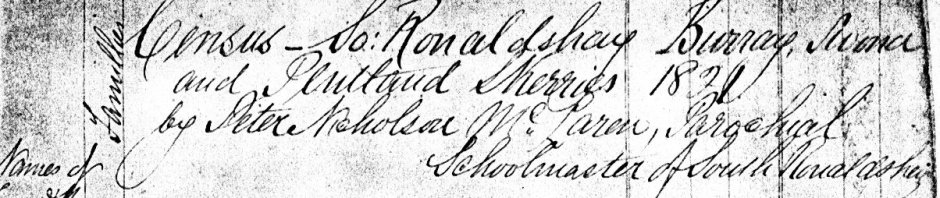 Families
Census - So: Ronaldshay Burray, Swona
and Pentland Skerries 1821
by Peter Nicholson Mc. Laren, Parochial
Schoolmaster of South Ronaldshay
Names of